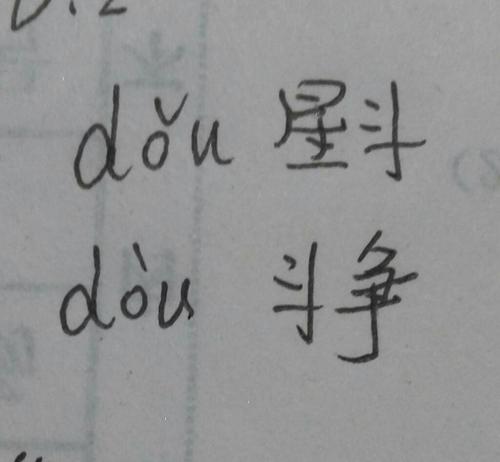 dǒu 星斗
dòu 斗争